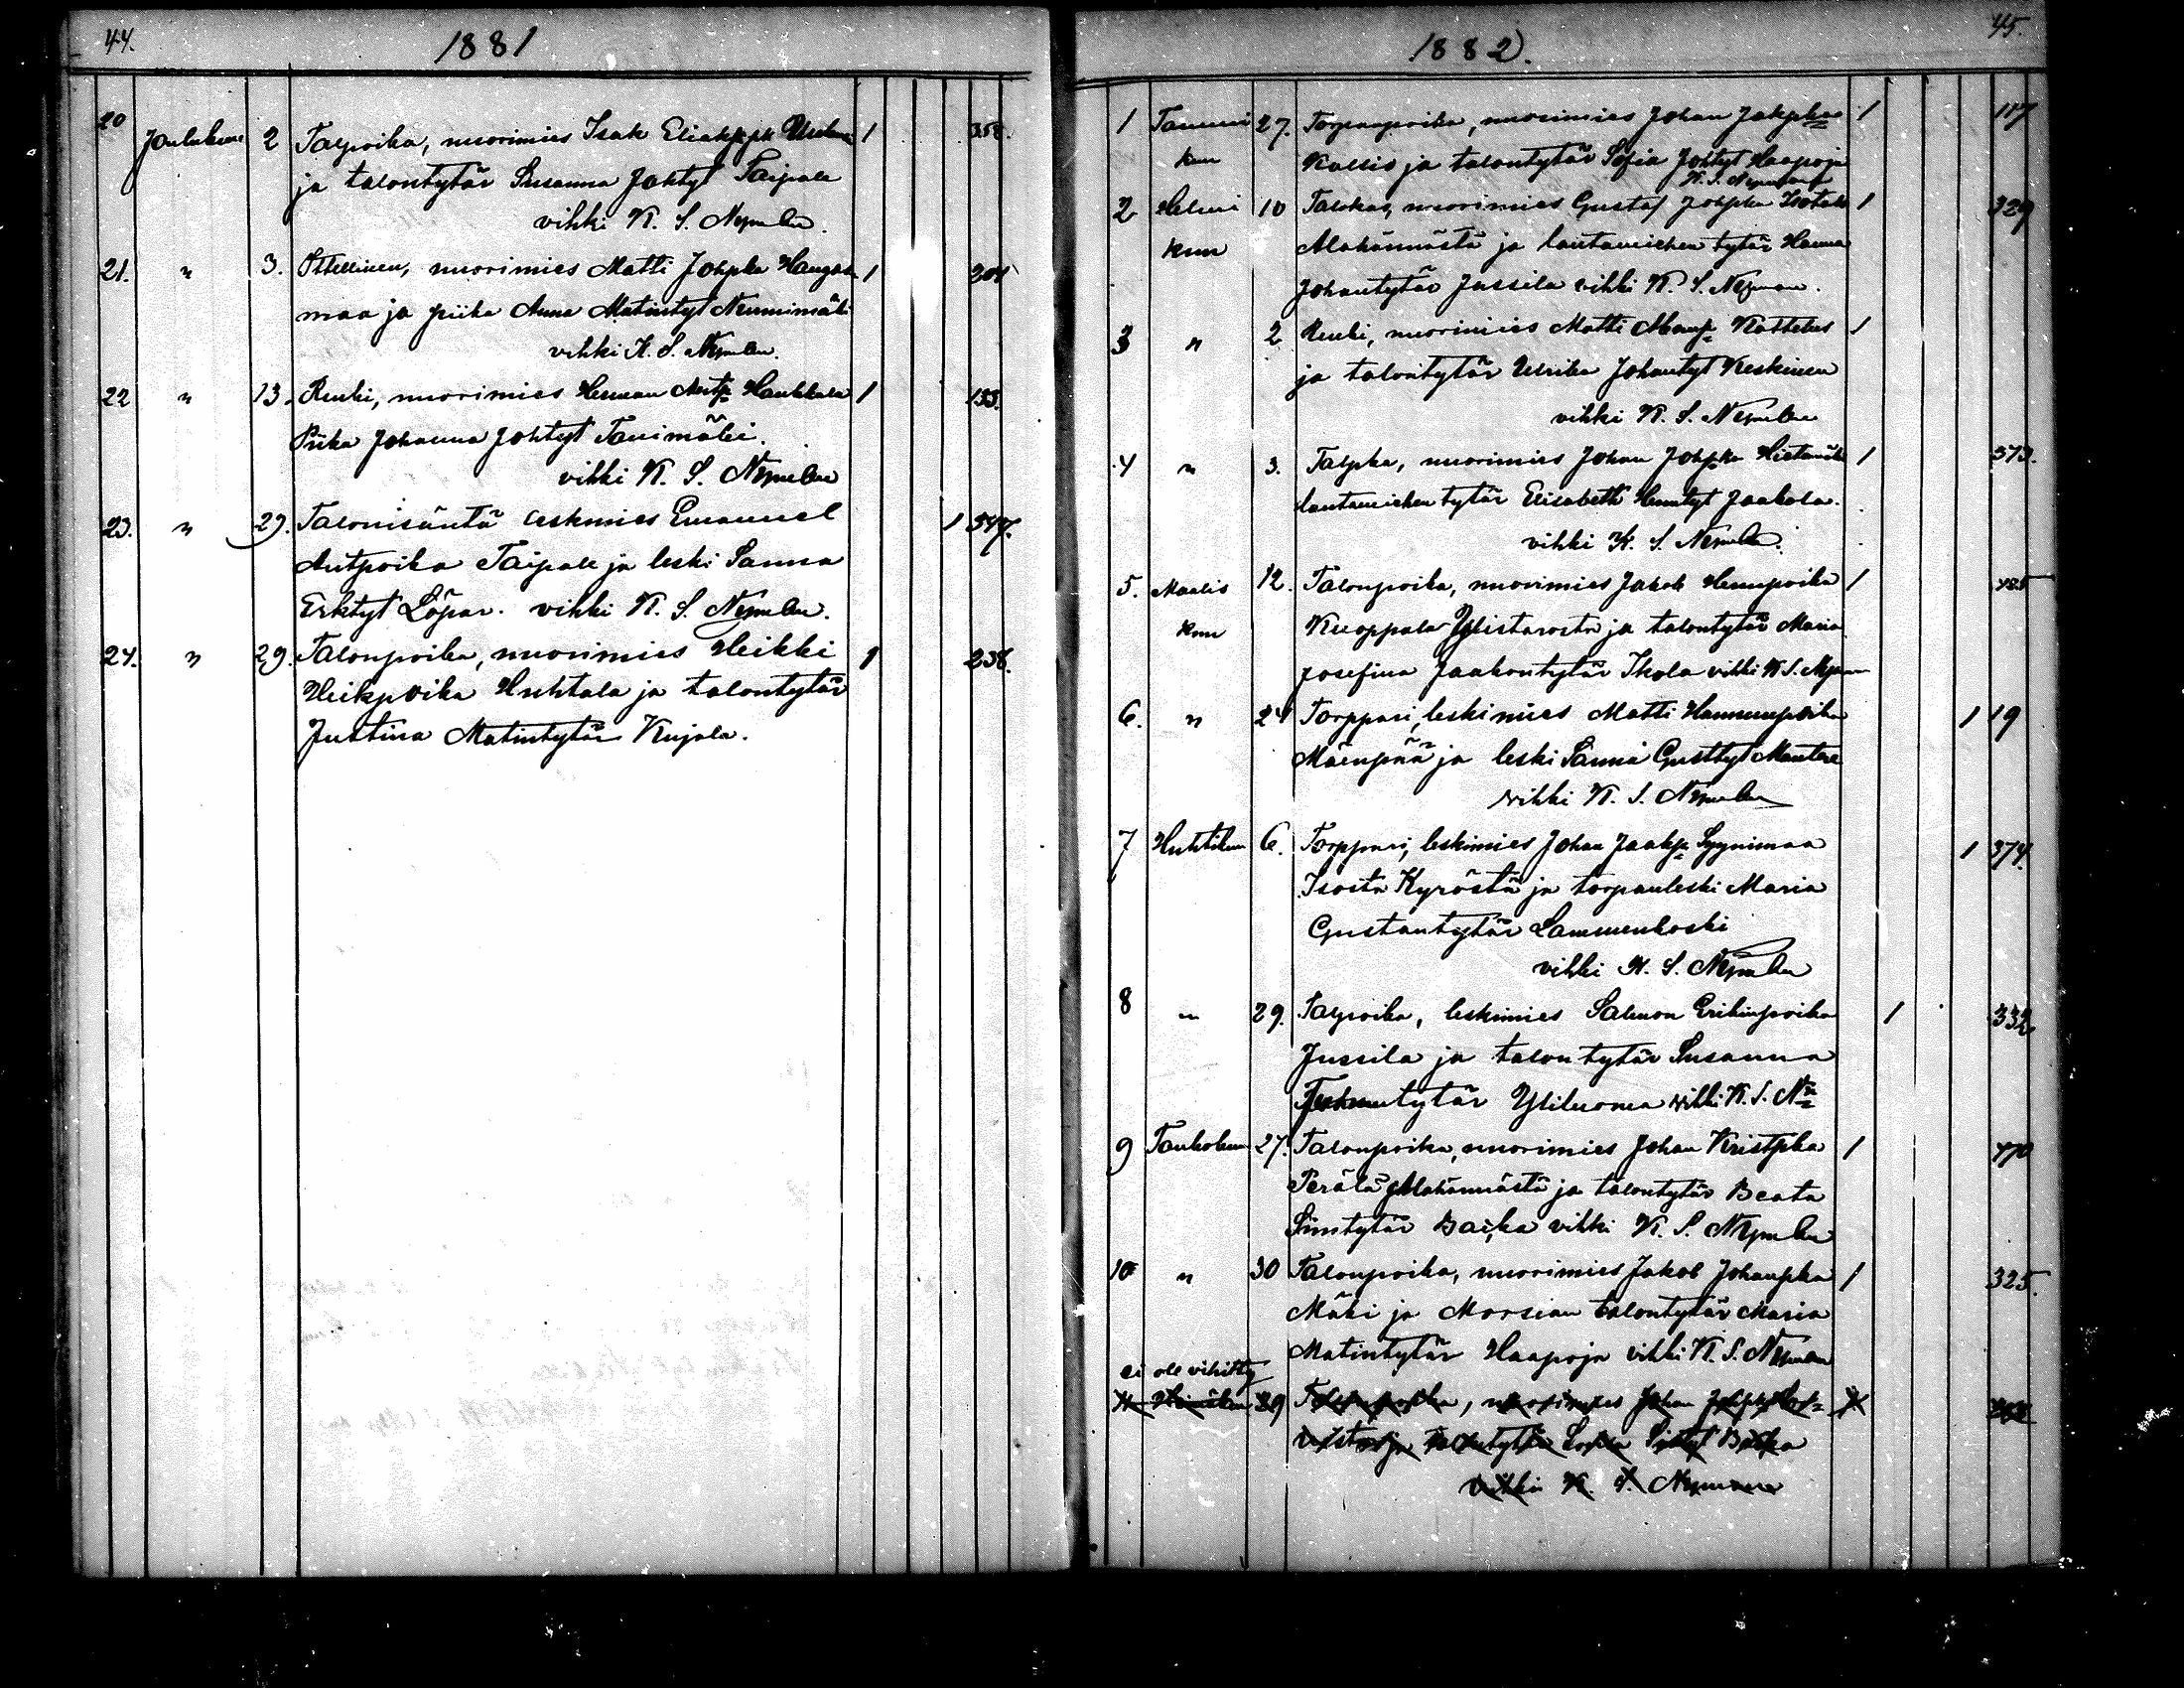 44.
1881
20 Joulukuu 2 Talpoika, nuorimies Isak Eliak 1 358.
ja talontytär Susanna Johtyt Taipale
vihki K. S. Nyman.
21. " 3. Itsellinen, nuorimies Matti Johpka Hangas 1 204
maa ja piika Anna Matintyt Nurmimäki
vihki K. S. Nyman.
22 " 13. Renki, nuorimies Herman Antp Haukkala 1 133.
Piika Johanna Johtyt Tanimäki.
vihki K. S. Nyman
23. " 29. Talonisäntä leskimies Emanuel 1 347.
Antpoika Taipale ja leski Sanna
Erktyt Löpar. vihki K. S. Nyman.
24. " 29. Talonpoika, nuorimies Heikki 1 238.
Heikpoika Huhtala ja talontytär
Justina Matintytär Kujala.
45.
1882.
1 Tammi 27. Torpanpoika, nuorimies Johan Jakpka 1 117
kuu Kallis ja talontytär Sofia Johtyt Haapoja
K. S. Nyman
2 Helmi 10 Talokas, nuorimies Gustaf Johpka Isotalo 1 329
kuu Alahärmästä ja lautamiehen tytär Hanna
Johantytär Jussila vihki K. S. Nyman.
3 " 2 Renki, nuorimies Matti Kattelus 1
ja talontytär Ulrika Johantyt Keskinen
vihki K. S. Nyman
4 " 3. Talpka, nuorimies Johan Johpka Hietamäki 1 373.
lautamiehen tytär Elisabeth Henntyt Jaakola.
vihki K. S. Nyman.
5. Maalis 12. Talonpoika, nuorimies Jakob Hennpoika 1 425
kuu Kuoppala Ylistarosta ja talontytär Maria
Josefina Jaakontytär Ikola vihki K. S. Nyman
6. " 24 Torppari, leskimies Matti Hannunpoika 1 19
Mäenpää ja leski Sanna Gusttyt Mantere
vihki K. S. Nyman
7 Huhtikuu 6. Torppari, leskimies Johan Jaakp Syynimaa 1 374.
Isosta Kyröstä ja torpanleski Maria
Gustantytär Lammenkoski
vihki K. S. Nyman
8 " 29. Talpoika, leskimies Salomon Erikinpoika 1 332
Jussila ja talontytär Susanna
Juhantytär Yliluoma vihki K. S. Nn
9 Toukokuu 27. Talonpoika, nuorimies Johan Kristpka 1 470
Perälä Alahärmästä ja talontytär Beata
Simtytär Backa vihki K. S. Nyman
10 " 30 Talonpoika, nuorimies Jakob Johanpka 1 325.
Mäki ja Morsian talontytär Maria
Matintytär Haapoja vihki K. S. Nyman
ei ole vihitty
11 Heinäkuu 29 Talonpoika, nuorimies Johan
ja talontytär Simtyt Backa
vihki K. S. Nyman